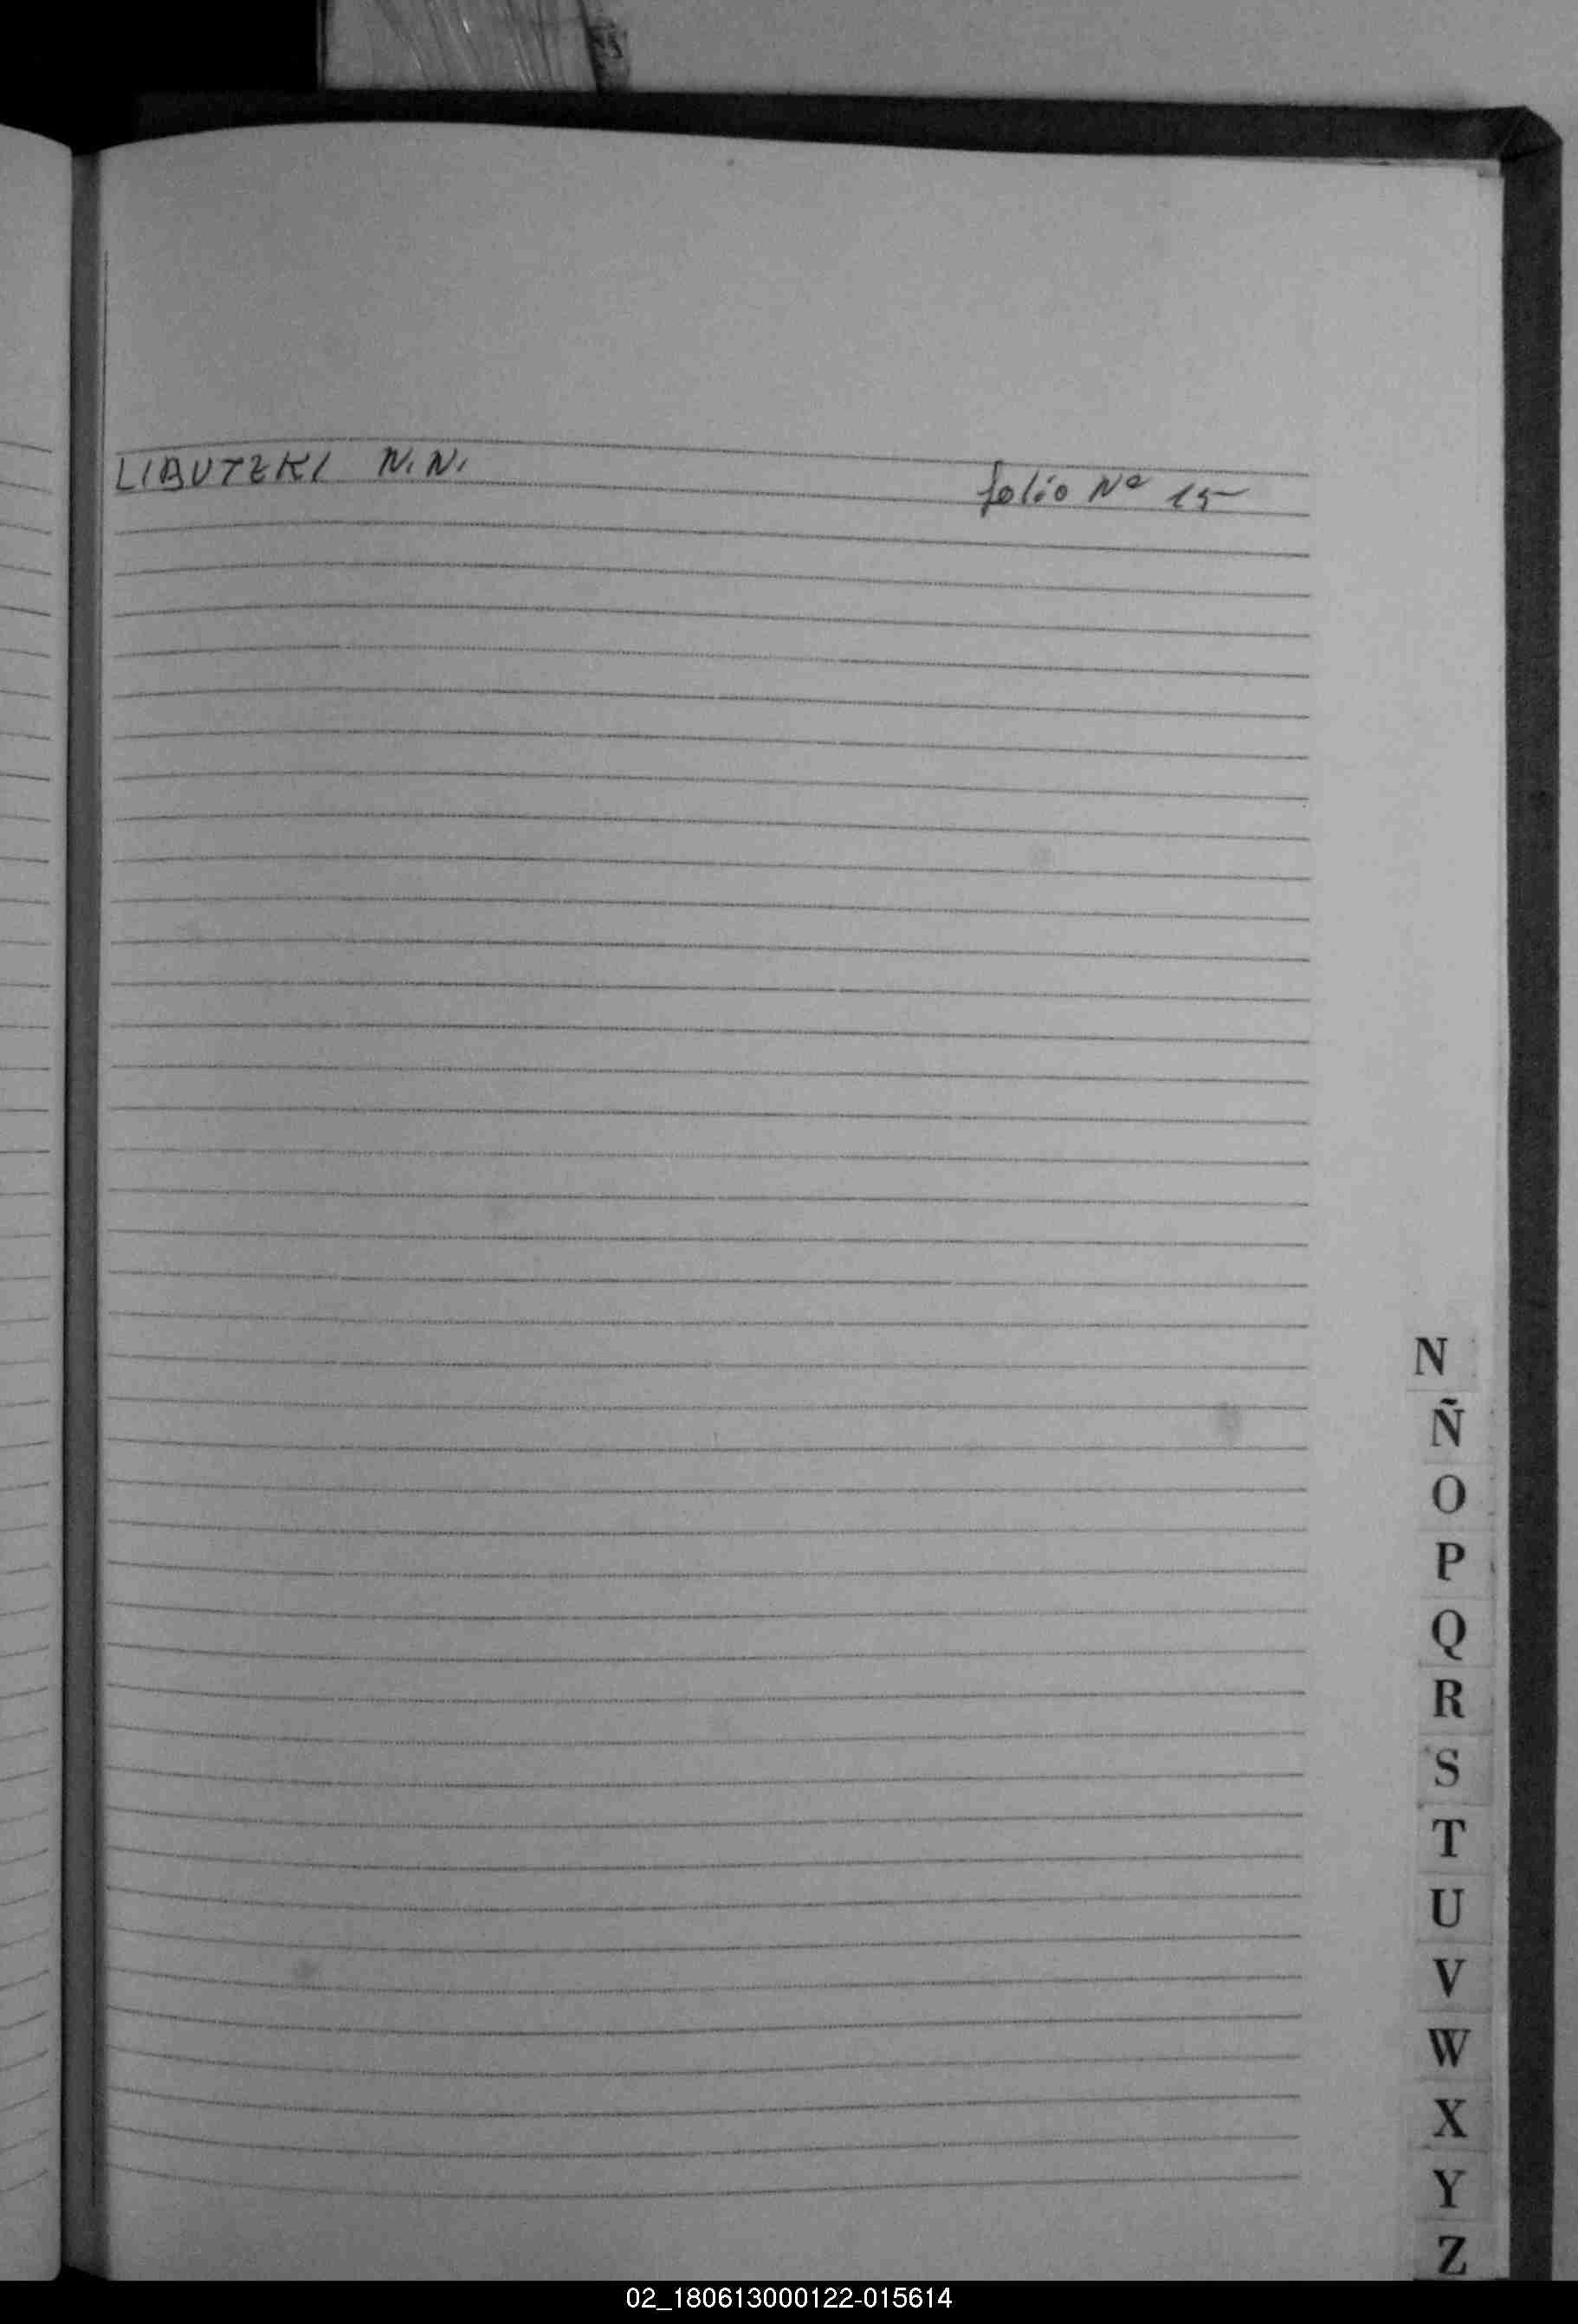 LIBUTZKI N.N. folio Nº 15
N
Ñ
O
P
Q
R
S
T
U
V
W
X
Y
Z
02_180613000122-015614